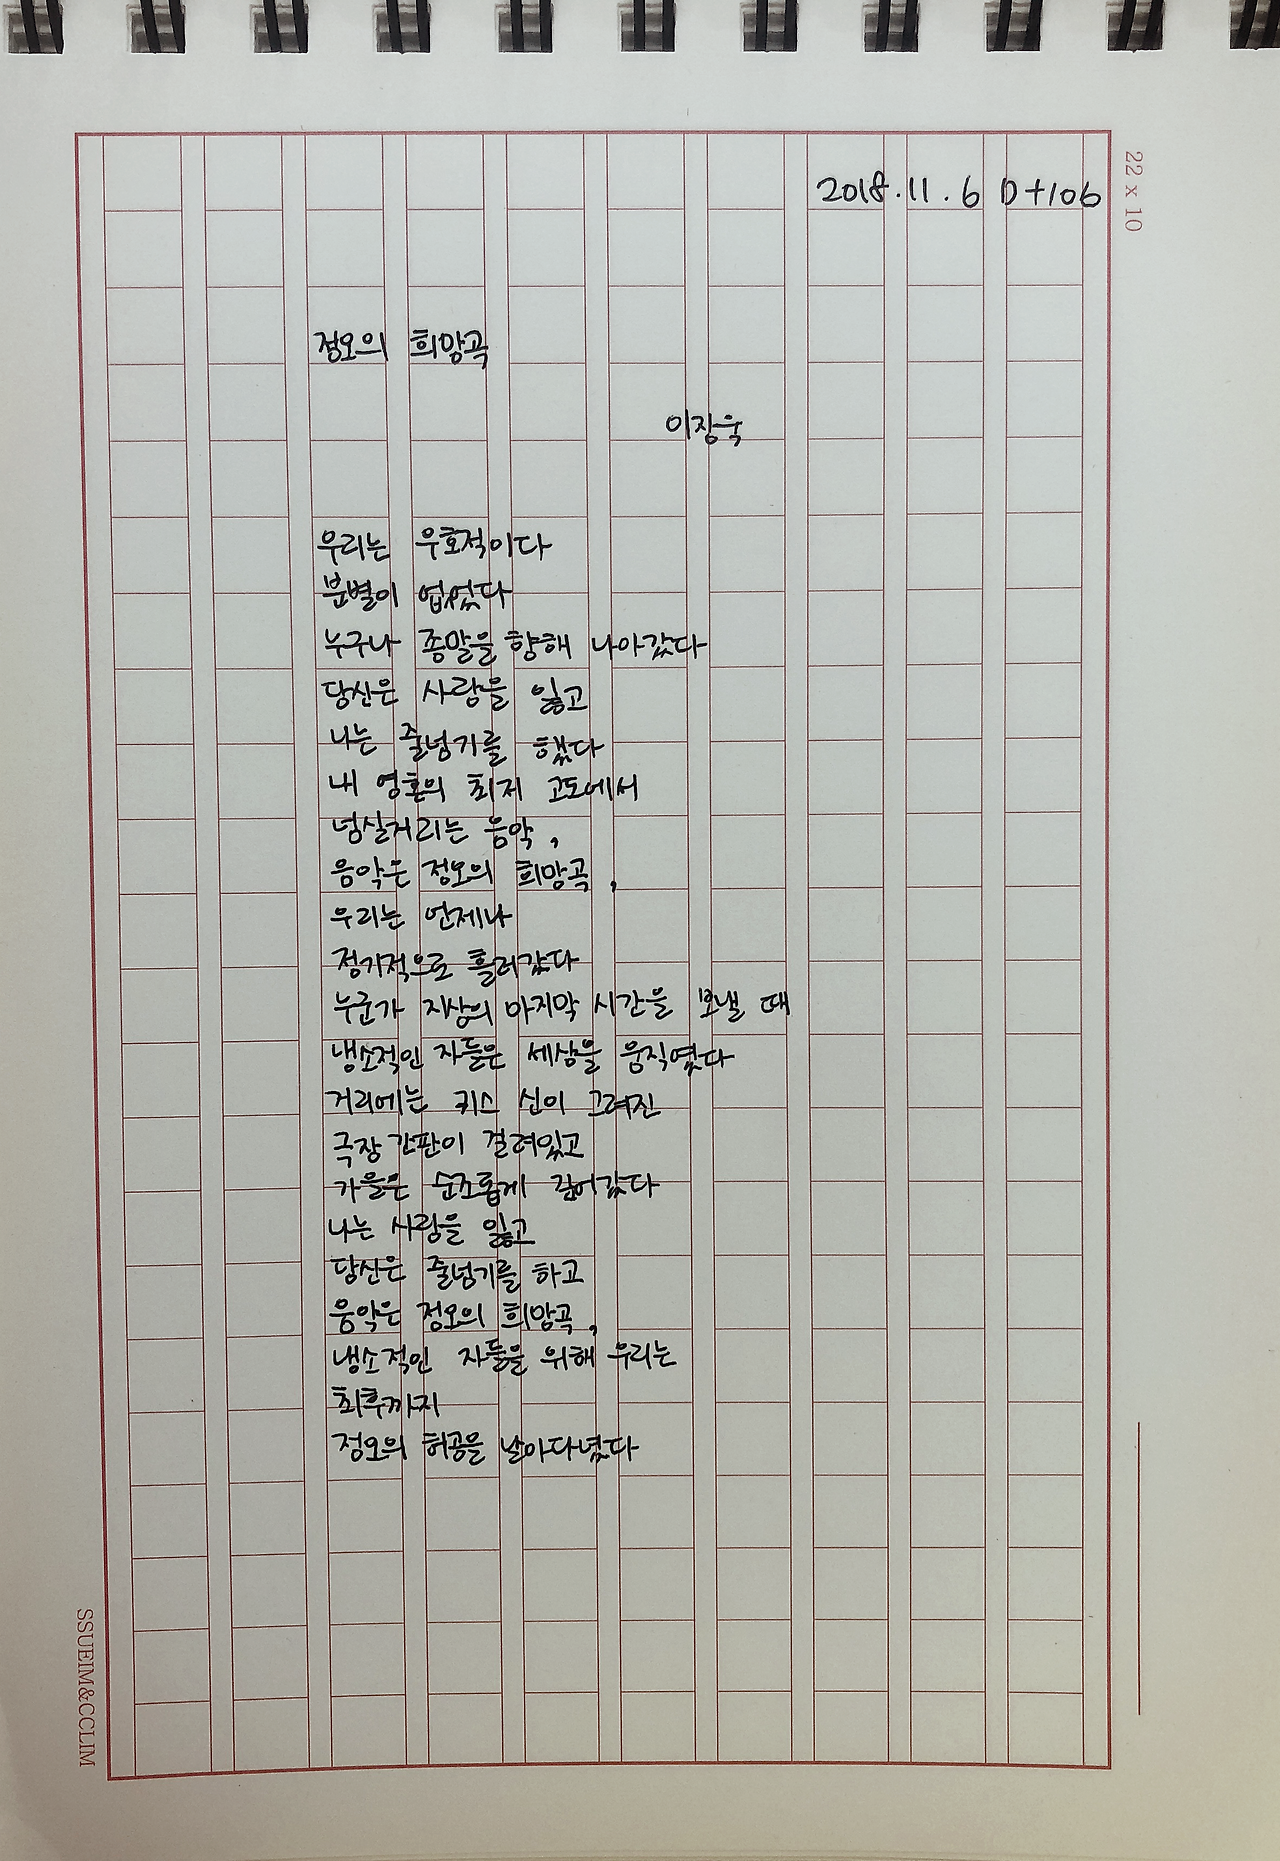 2018.11.6 D+106
22 x 10
정오의 희망곡
이장욱
우리는 우호적이다
분별이 없었다
누구나 종말을 향해 나아갔다
당신은 사랑을 잃고
나는 줄넘기를 했다
내 영혼의 최저 고도에서
넘실거리는 음악,
음악은 정오의 희망곡,
우리는 언제나
정기적으로 흘러갔다
누군가 지상의 마지막 시간을 보낼 때
냉소적인 자들은 세상을 움직였다
거리에는 키스 신이 그려진
극장 간판이 걸려있고
가을은 순조롭게 깊어갔다
나는 사랑을 잃고
당신은 줄넘기를 하고
음악은 정오의 희망곡,
냉소적인 자들을 위해 우리는
최후까지
정오의 허공을 날아다녔다
SSUEIM&CCLIM